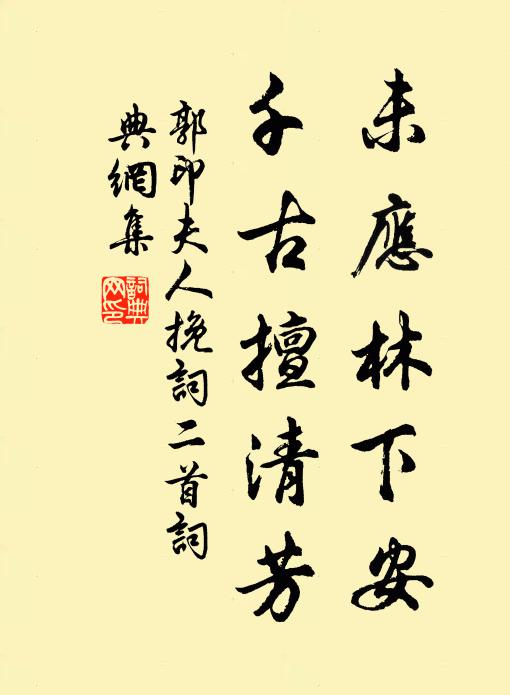 未應林下安
千古擅清芳
郭印夫人挽詞二首詞
典網集
詞典
网印